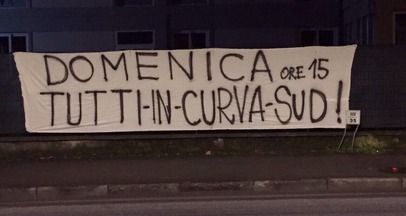 DOMENICA ORE 15
TUTTI-IN-CURVA-SUD!